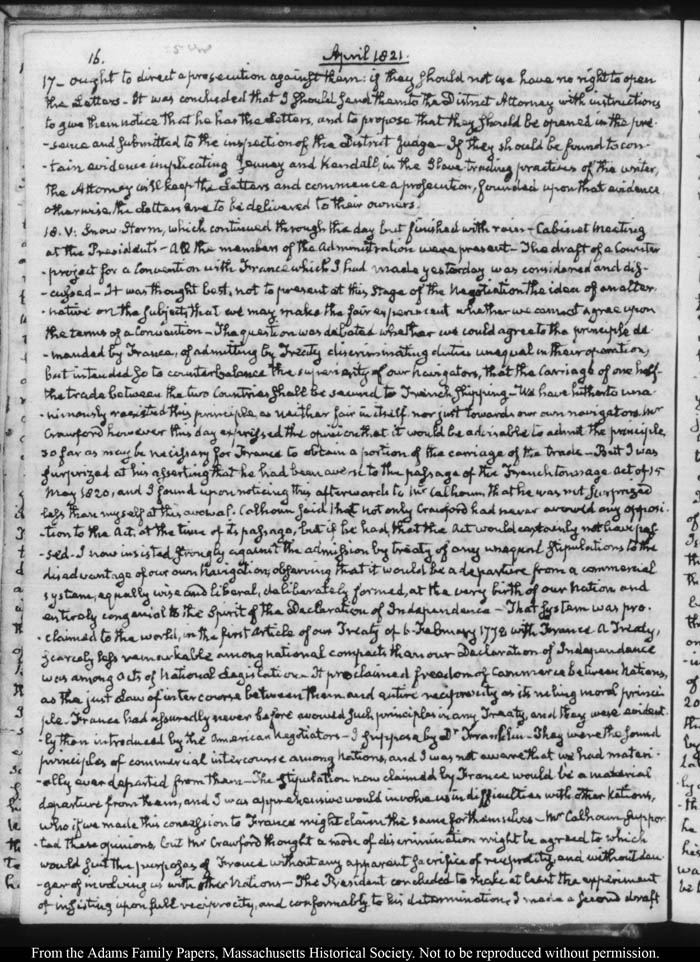 16.
April 1821.
17- ought to direct a prosecution against them: if they should not we have no right to open
the Letters- It was concluded that I should send them to the District Attorney with instructions
to give them notice that he has the Letters, and to propose that they should be opened in the pre-
-sence and submitted to the inspection of the District Judge- If they should be found to con-
-tain evidence implicating Jenney and Kendall, in the Slave trading practices of the writer,
the Attorney will keep the Letters and commence a prosecution, founded upon that evidence
otherwise, the Letters are to be delivered to their owners.
18. V: Snow Storm, which continued through the day but finished with rain- Cabinet Meeting
at the Presidents- All the members of the Administration were present- The draft of a Counter
-project for a Convention with France which I had made yesterday was considered and dis-
-cussed- It was thought best, not to present at this stage of the Negotiation the idea of an alter-
-native on the subject; that we may make the fair experiment whether we cannot agree upon
the terms of a Convention- The question was debated whether we could agree to the principle de-
-manded by France, of admitting by Treaty discriminating duties unequal in their operation,
but intended so to counterbalance the superiority of our navigators, that the Carriage of one half
the trade between the two Countries shall be secured to French shipping- We have hitherto una-
-nimously resisted this principle, as neither fair in itself nor just towards our own navigators. Mr
Crawford however this day expressed the opinion that it would be advisable to admit the principle,
so far as may be necessary for France to obtain a portion of the carriage of the trade- But I was
surprized at his asserting that he had been averse to the passage of the French tonnage Act of 15
May 1820, and I found upon noticing this afterwards to Mr Calhoun, that he was not surprized
less than myself at this avowal. Calhoun said that not only Crawford had never avowed any opposi-
-tion to the Act, at the time of its passage, but if he had, that the Act would certainly not have pas-
-sed. I now insisted strongly against the admission by treaty of any unequal stipulations to the
disadvantage of our own Navigation, observing that it would be a departure from a commercial
system, equally wise and liberal, deliberately formed, at the very birth of our Nation and
entirely congenial to the Spirit of the Declaration of Independence- That System was pro-
-claimed to the world, in the first Article of our Treaty of 6 February 1778 with France. A Treaty,
scarcely less remarkable among national compacts than our Declaration of Independence
was among acts of National Legislation- It proclaimed freedom of Commerce between Nations,
as the just Law of intercourse between them and entire reciprocity as its ruling moral princi-
ple. France had assuredly never before avowed such principles in any Treaty, and they were evident-
-ly then introduced by the American Negotiators- I suppose by Dr Franklin- They were the sound
principles of commercial intercourse among Nations, and I was not aware that we had materi-
-ally ever departed from them- The stipulation now claimed by France would be a material
departure from them, and I was apprehensive would involve us in difficulties with other Nations,
who if we made this concession to France might claim the same for themselves- Mr Calhoun suppor-
ted these opinions, but Mr Crawford thought a mode of discrimination might be agreed to which
would suit the purposes of France without any apparent sacrifice of reciprocity, and without dan-
-ger of involving us with other Nations- The President concluded to make at least the experiment
of insisting upon full reciprocity, and conformably to his determination, I made a second draft
From the Adams Family Papers, Massachusetts Historical Society. Not to be reproduced without permission.